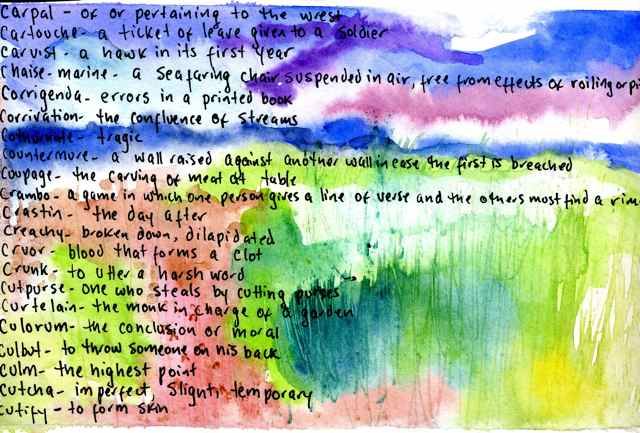 Carpal - of or pertaining to the wrest
Cartouche - a ticket of leave given to a soldier
Carvist - a hawk in its first year
Chaise-marine - a seafaring chair suspended in air, free from effects of roiling or
Corrigenda - errors in a printed book
Corrivation - the confluence of streams
Cothurnate - tragic
Countermure - a wall raised against another wall in case the first is breached
Coupage - the carving of meat at table
Crambo - a game in which one person gives a line of verse and the others must find a
Crastin - the day after
Creachy - broken down, dilapidated
Cruor - blood that forms a clot
Crunk - to utter a harsh word
Cutpurse - one who steals by cutting purses
Curtelain - the monk in charge of a garden
Culorum - the conclusion or moral
Culbut - to throw someone on his back
Culm - the highest point
Cutcha - imperfect, slight, temporary
Cutify - to form skin